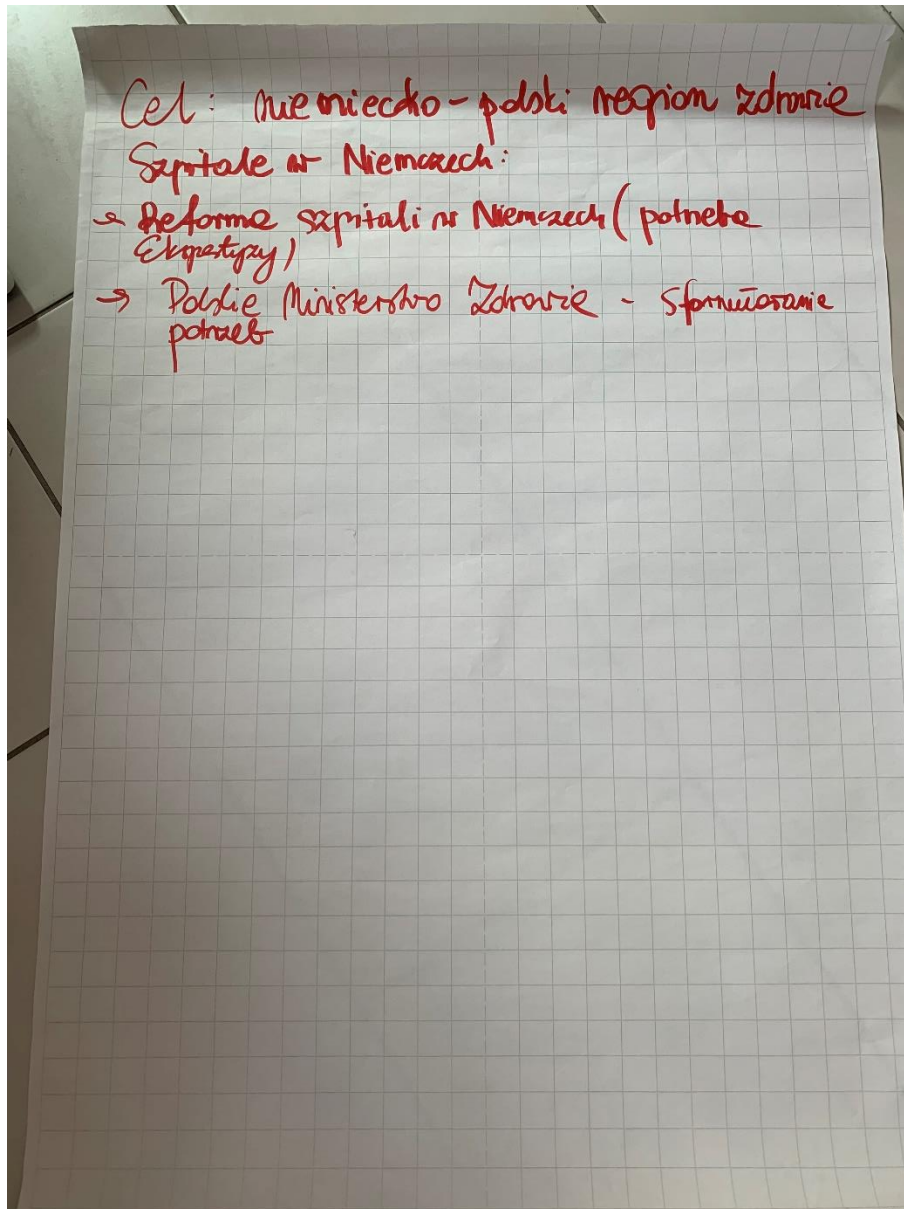 Cel: niemiecko-polski region zdrowia
Szpitale w Niemczech:
→ Reforma szpitali w Niemczech (potrzeba
Ekspertyzy)
→ Polskie Ministerstwo Zdrowia - Sformułowanie
potrzeb